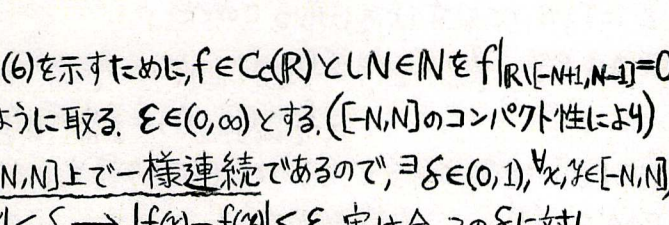 (6)を示すために, f∈Cc(ℝ)としN∈ℕをf|ℝ\[-N+1,N-1]=0
ように取る. ε∈(0,∞)とする. ([-N,N]のコンパクト性により)
N,N]上で一様連続であるので, ∃δ∈(0,1), ∀x,y∈[-N,N]
|<δ ⟹ |f(x)-f(y)|<ε